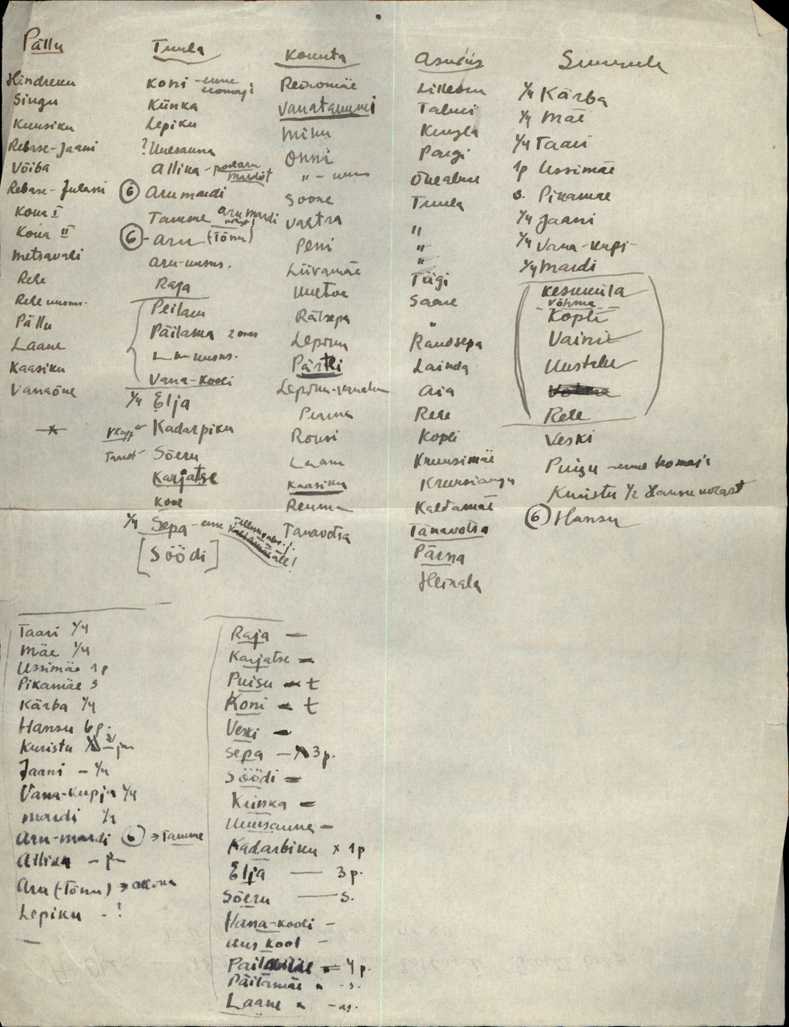 Pällu
Hindreku
Singu
Kuusiku
Rebase-Jaani
Võiba
Rebase-Juhani
Kona I
Kona II
Metsavahi
Rehe
Rehe uus.
Pällu
Laane
Kaasiku
Vanaõue
Tuula
Koni - enne
Künka
Lepiku
? Uuesauna
Allika -
⑥ Aru mardi
Tamme Aru mardi
⑥ - Aru (Tõnu)
Aru-uus.
Raja
Peilam
Päilama 2
Vana-Kooli
1/4 Elja
Kadarpiku
Sõeru
Karjatse
Kooli
1/4 Sepa - enne
[Söödi]
Kounta
Redromäe
Vanatammi
Mihu
Onni
" - uus
Soone
Valtra
Peni
Liivamäe
Uuetoa
Rätsepa
Lepõna
Pärtli
Perma
Rousi
Laane
Kaasiku
Reinma
Tanavotsa
Asuküs
Lillebum
Talusi
Kungla
Pargi
Õnealuse
Tuula
"
"
"
Tiigi
Saare
"
Randsepa
Lainda
Aia
Rehe
Kopli
Kruusimäe
Kruusiaugu
Kaldamäe
Tänavotsa
Pärna
Heinala
Suurmula
1/4 Kärba
1/4 Mäe
1/4 Taari
1p Ussimäe
s. Pikamäe
1/4 Jaani
1/4 Vana-Kupja
1/4 Mardi
Kesknula
Võhma
Kopli
Vainu
Uustalu
Rehe
Veski
Puigu - enne
Kuristu 1/2 Hansu
⑥ Hansu
Taari 1/4
Mäe 1/4
Ussimäe 1p
Pikamäe s
Kärba 1/4
Hansu 6p.
Kuristu
Jaani - 1/4
Vana-Kupja 1/4
Mardi 1/4
Aru-Mardi ⑥ → Tamme
Allika
Aru (-Tõnu) → Allika
Lepiku - ?
Raja -
Karjatse -
Puisu - t
Koni - t
Veski -
Sepa - 3p.
Söödi -
Künka -
Uuesauna -
Kadarbiku x 1p
Elja - 3p.
Sõeru - s.
Vana-kooli -
Uus kool -
4p.
Päilamäe " -s.
Laane "